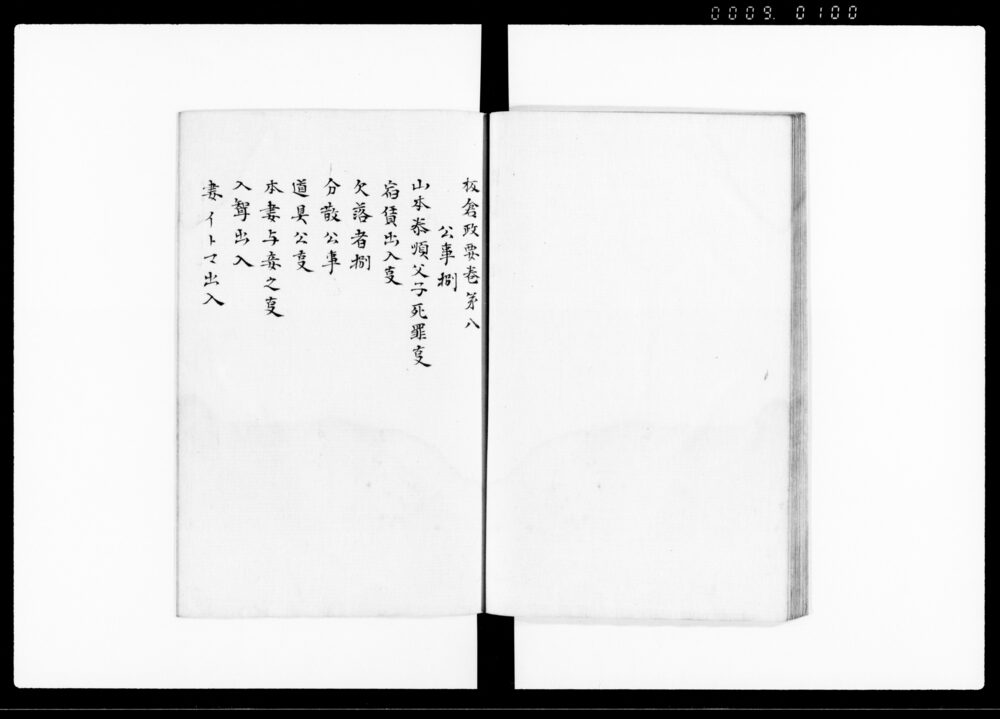 0009. 0100
板倉政要巻第八
公事捌
山本泰順父子死罪叓
宿賃出入叓
欠落者捌
分散公事
道具公叓
本妻与妾之叓
入聟出入
妻イトマ出入